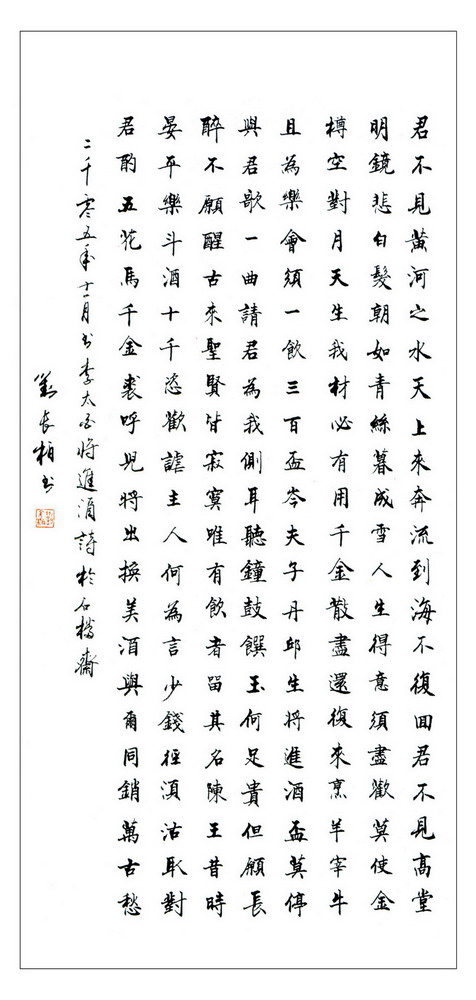 君不見黃河之水天上來奔流到海不復回君不見高堂
明鏡悲白髮朝如青絲暮成雪人生得意須盡歡莫使金
樽空對月天生我材必有用千金散盡還復來烹羊宰牛
且為樂會須一飲三百盃岑夫子丹邱生將進酒盃莫停
與君歌一曲請君為我側耳聽鐘鼓饌玉何足貴但願長
醉不願醒古來聖賢皆寂寞唯有飲者留其名陳王昔時
晏平樂斗酒十千恣歡謔主人何為言少錢徑須沽取對
君酌五花馬千金裘呼兒將出換美酒與爾同銷萬古愁
二千零五年十一月书李太白將進酒詩於石橋齋
劉長柏书